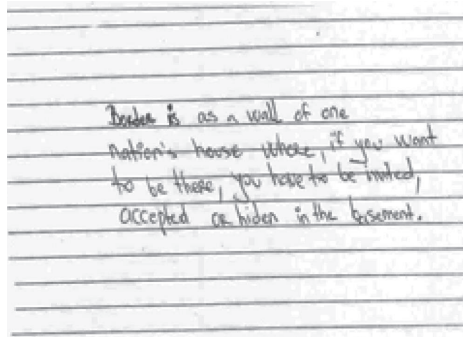 Border is as a wall of one
nation's house where, if you want
to be there, you have to be invited,
accepted or hiden in the basement.